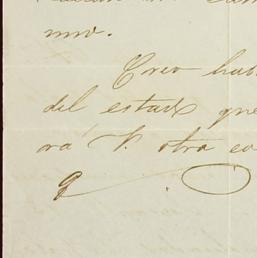 mio.
Creo hab
del estado que
rá V. otra co